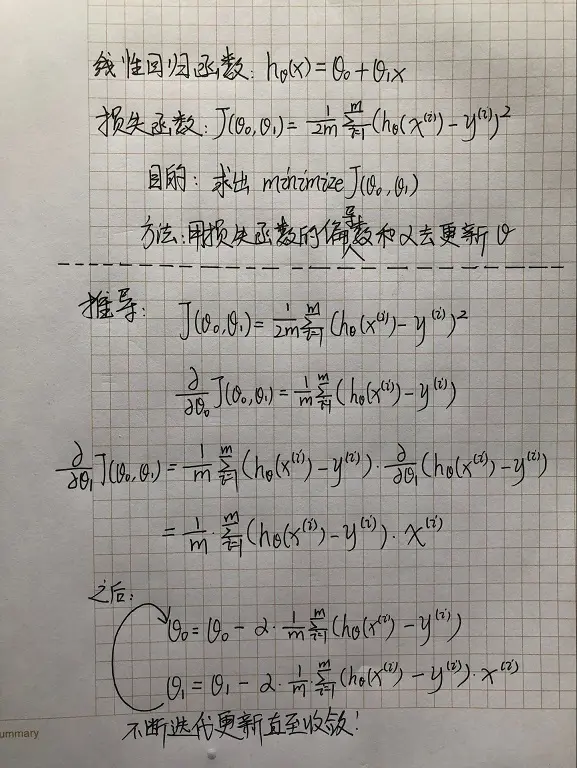 线性回归函数: hθ(x) = θ₀ + θ₁x
损失函数: J(θ₀,θ₁) = 1/2m ∑ᵢ₌₁ᵐ (hθ(x⁽ⁱ⁾) − y⁽ⁱ⁾)²
目的: 求出 minimize J(θ₀,θ₁)
方法: 用损失函数的偏导数和α去更新θ
推导: J(θ₀,θ₁) = 1/2m ∑ᵢ₌₁ᵐ (hθ(x⁽ⁱ⁾) − y⁽ⁱ⁾)²
∂/∂θ₀ J(θ₀,θ₁) = 1/m ∑ᵢ₌₁ᵐ (hθ(x⁽ⁱ⁾) − y⁽ⁱ⁾)
∂/∂θ₁ J(θ₀,θ₁) = 1/m ∑ᵢ₌₁ᵐ (hθ(x⁽ⁱ⁾) − y⁽ⁱ⁾) · ∂/∂θ₁ (hθ(x⁽ⁱ⁾) − y⁽ⁱ⁾)
= 1/m · ∑ᵢ₌₁ᵐ (hθ(x⁽ⁱ⁾) − y⁽ⁱ⁾) · x⁽ⁱ⁾
之后:
θ₀ = θ₀ − α · 1/m ∑ᵢ₌₁ᵐ (hθ(x⁽ⁱ⁾) − y⁽ⁱ⁾)
θ₁ = θ₁ − α · 1/m · ∑ᵢ₌₁ᵐ (hθ(x⁽ⁱ⁾) − y⁽ⁱ⁾) · x⁽ⁱ⁾
不断迭代更新直至收敛!
ummary